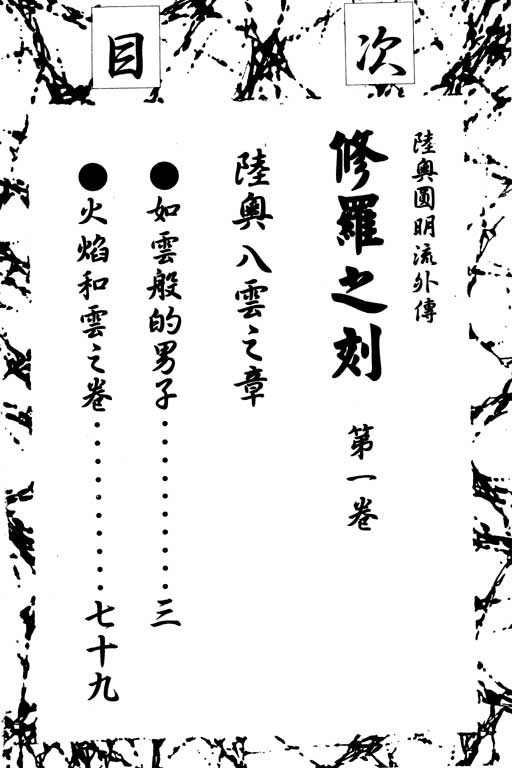 目次
陸奧圓明流外傳
修羅之刻 第一卷
陸奧八雲之章
●如雲般的男子‥‥‥‥‥三
●火焰和雲之卷‥‥‥‥‥七十九